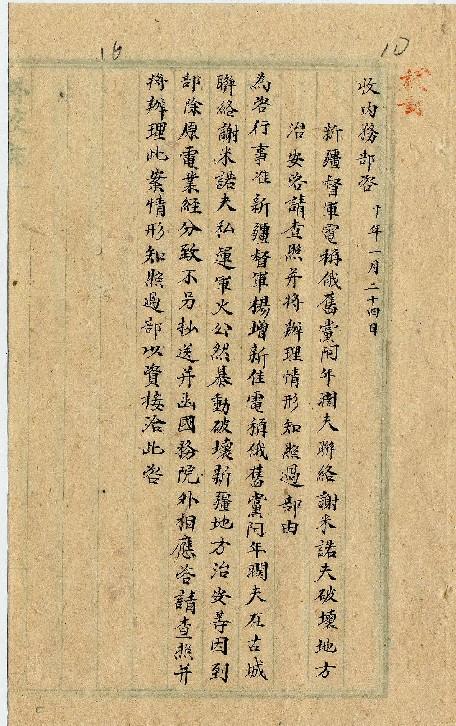 10
16
收內務部咨 十年一月二十四日
新疆督軍電稱俄舊黨阿年闊夫聯絡謝米諾夫破壞地方
治安咨請查照并將辦理情形知照過部由
為咨行事准新疆督軍楊增新佳電稱俄舊黨阿年闊夫在古城
聯絡謝米諾夫私運軍火公然暴動破壞新疆地方治安等因到
部除原電業經分致不另抄送并函國務院外相應咨請查照并
將辦理此案情形知照過部以資接洽此咨